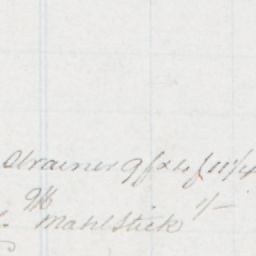 Strainer 9f x 4f 11/4
9/6
Mahlstick 1/-